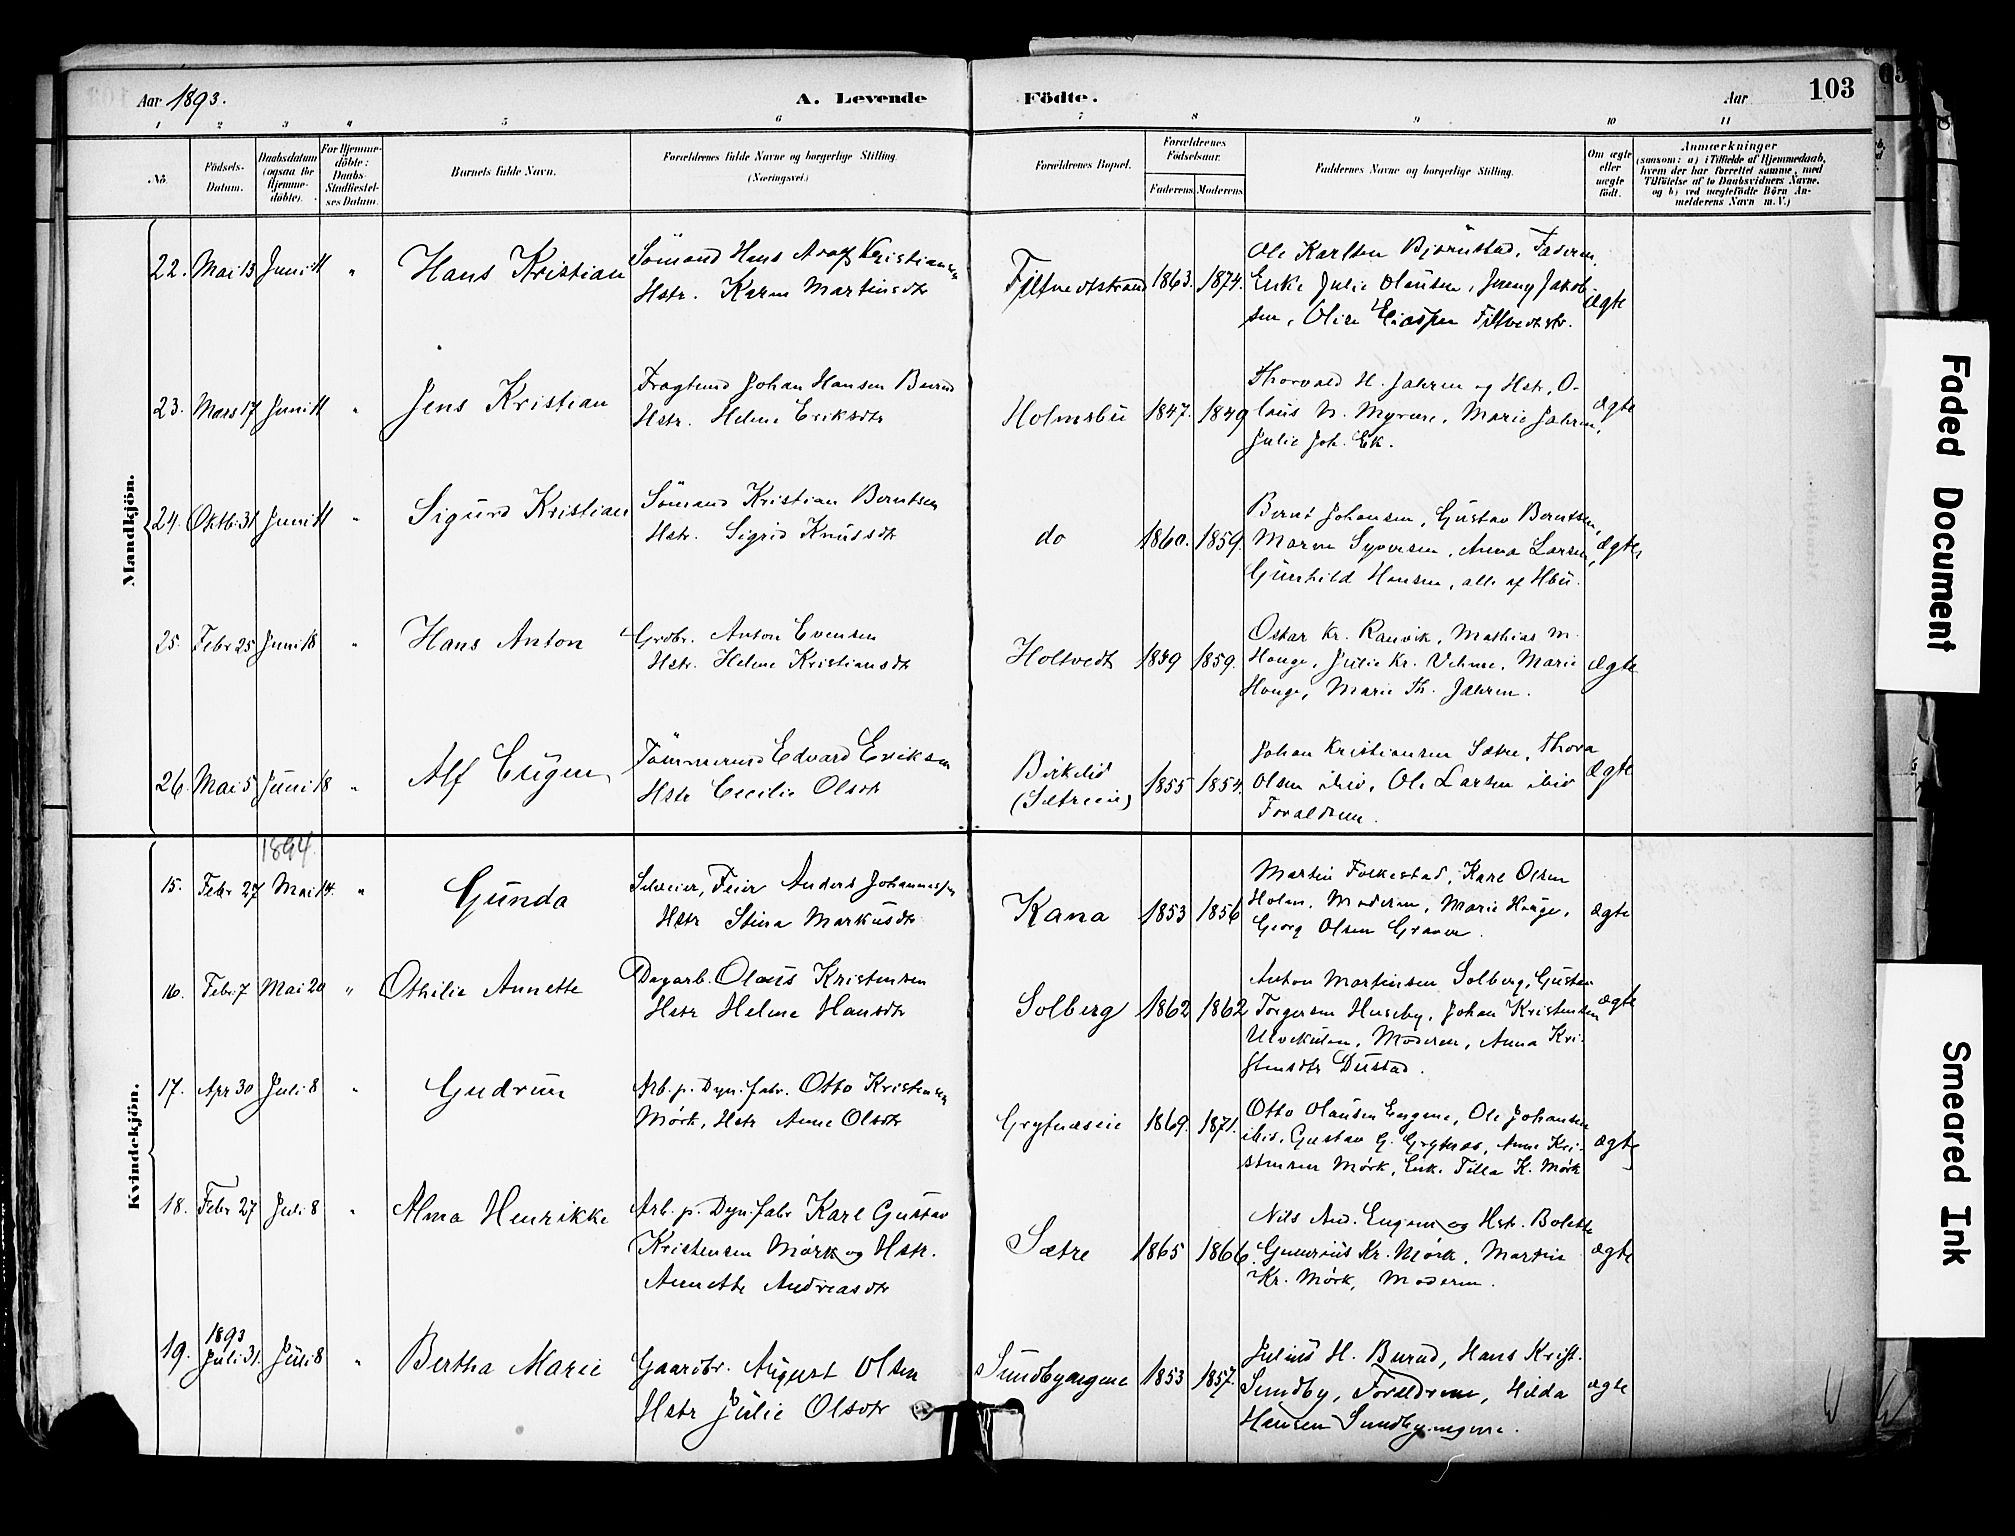 Aar 1893.
A. Levende
Födte.
Aar
103
1 2 3 4 5 6 7 8 9 10 11
No.
Födsels-
Datum.
Daabsdatum
(ogsaa for
Hjemme-
döbte).
For Hjemme-
döbte:
Daabs-
Stadfæstel-
ses Datum.
Barnets fulde Navn.
Forældrenes fulde Navne og borgerlige Stilling.
(Næringsvei.)
Forældrenes Bopæl.
Forældrenes
Födselsaar.
Faderens. Moderens.
Faddernes Navne og borgerlige Stilling.
Om ægte
eller
uægte
født.
Anmærkninger
(saasom: a) i Tilfælde af Hjemmedaab,
hvem der har forrettet samme, med
Tilföielse af to Daabsvidners Navne,
og b) ved uægtefödte Börn An-
melderens Navn m. V.)
Mandkjön.
22. Mai 13 Juni 11 " Hans Kristian
Sömand Hans Adolf Kristiansen
Hstr. Karen Martinsdtr
Filtvedtstrand 1863. 1874.
Ole Karlsen Bjørnstad, Faderen,
Enke Julie Olausen, Jenny Jakob-
sen, Oline Filtvedtstr.
ægte
23. Mars 17 Juni 11 " Jens Kristian
Fragtmd Johan Hansen Burud
Hstr. Helene Eriksdtr
Holmsbu 1847. 1849
Thorvald H. Jahren og Hstr, O-
laus N. Myrene, Marie Jahren,
Julie Joh. Ek.
ægte
24. Oktb: 31 Juni 11 " Sigurd Kristian
Sömand Kristian Berntsen
Hstr. Sigrid Knudsdtr
do 1860. 1859.
Bernt Johansen, Gustav Berntsen,
Maren Syversen, Anna Larsen,
Gunhild Hansen, alle af Hbu.
ægte
25. Febr 25 Juni 18 " Hans Anton
Grdbr. Anton Evensen
Hstr. Helene Kristiansdtr
Holtvedt 1859 1859.
Oskar Kr. Ranvik, Mathias M.
Hauge, Julie Kr. Marie
Hauge, Marie Th. Jahren.
ægte
26. Mai 5 Juni 18 " Alf Eugen
Tömmermd Edvard Eriksen
Hstr Cecilie Olsdtr
Birkelid
(Sætreeie) 1855 1854.
Johan Kristiansen Sætre, Thora
Olsen ibid, Ole Larsen ibid
Forældrene.
ægte
Kvindekjön.
1894.
15. Febr 27 Mai 14. " Gunda
Selveier, Feier Anders Johannessen
Hstr Stina Markusdtr
Kana 1853 1856
Martin Folkestad, Karl Olsen
Holm, Moderen, Marie Hauge,
Georg Olsen Graver.
ægte
16. Febr. 7 Mai 20 " Othilie Annette
Dagarb. Olaus Kristensen
Hstr Helene Hansdtr
Solberg 1862 1862
Anton Martinsen Solberg, Gustav
Torgersen Huseby, Johan Kristensen
Ulvekulen, Moderen, Anna Kri-
stensdtr Dustad.
ægte
17. Apr 30 Juli 8 " Gudrun
Arb. p. Dyn. fabr. Otto Kristensen
Mörk, Hstr Anne Olsdtr
Grytnæseie 1869. 1871.
Otto Olausen Engene, Ole Johansen
ibid, Gustav G. Grytnæs, Anne Kri-
stensen Mörk, Enk. Tilla K. Mörk
ægte
18. Febr 27 Juli 8 " Alma Henrikke
Arb. p. Dyn. fabr Karl Gustav
Kristensen Mörk og Hstr.
Annette Andreasdtr
Sætre 1865 1866.
Nils And. Engene og Hstr. Bolette
Gunerius Kr. Mörk, Martin
Kr. Mörk, Moderen.
ægte
19. 1893
Juli 31. Juli 8 " Bertha Marie
Gaardbr. August Olsen
Hstr Julie Olsdtr
Sundbyengene 1853 1857.
Julius H. Burud, Hans Krist.
Sundby, Forældrene, Hilda
Hansen Sundbyengene.
ægte
Faded Document
Smeared Ink